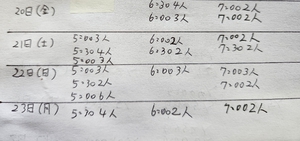 20日(金) 6:304人 7:002人
6:003人 7:002人
21日(土) 5:003人 6:002人 7:002人
5:304人 6:302人 7:302人
5:003人
22日(日) 5:003人 6:003人 7:003人
5:302人 7:002人
5:006人
23日(月) 5:304人 6:002人 7:002人